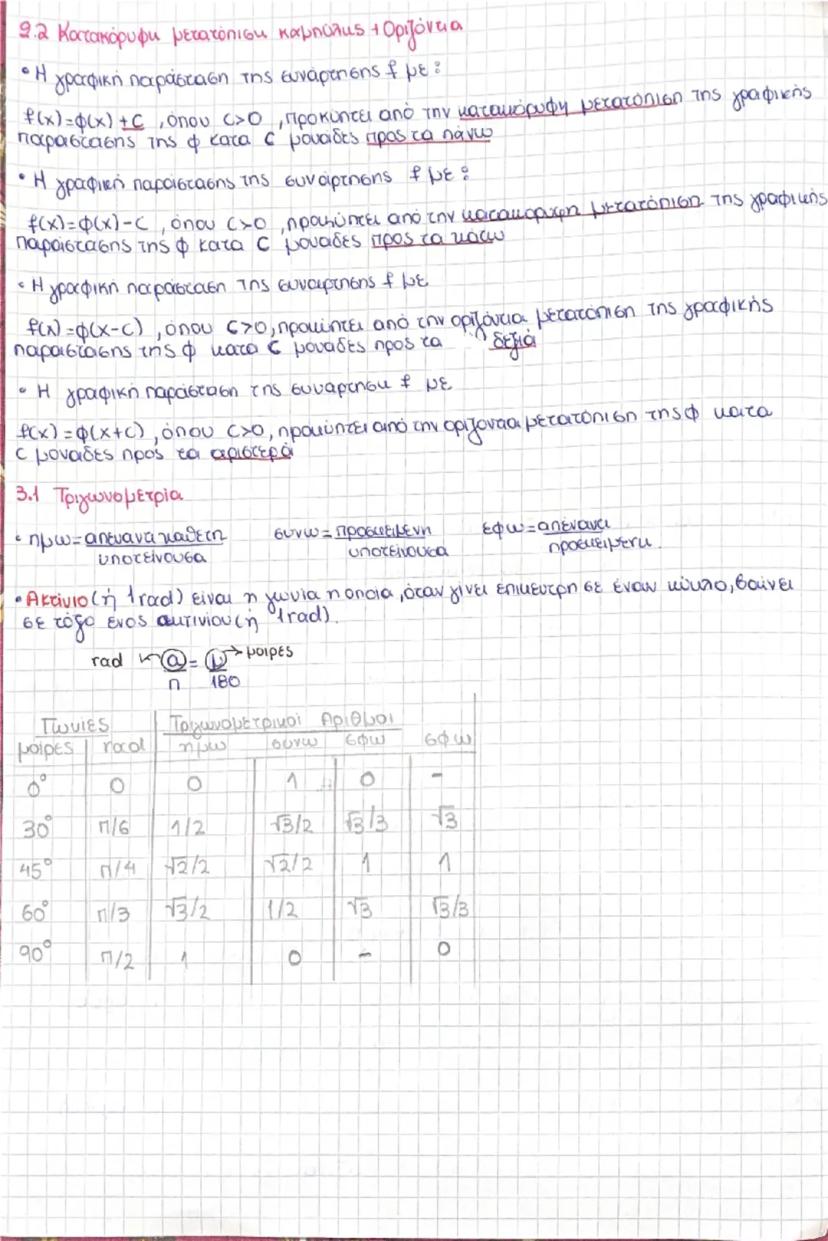 2.2 Κατακόρυφη μετατόπιση καμπύλης + Οριζόντια
• Η γραφική παράσταση της συνάρτησης f με:
f(x)=φ(x)+c, όπου c>0, προκύπτει από την κατακόρυφη μετατόπιση της γραφικής
παράστασης της φ κατα c μονάδες προς τα πάνω
• Η γραφική παράστασης της συνάρτησης f με:
f(x)=φ(x)-c, όπου c>0, προκύπτει από την κατακόρυφη μετατόπιση της γραφικής
παράστασης της φ κατα c μονάδες προς τα κάτω
• Η γραφική παράσταση της συνάρτησης f με
f(x)=φ(x-c), όπου c>0, προκύπτει από την οριζόντια μετατόπιση της γραφικής
παράστασης της φ κατα c μονάδες προς τα δεξιά
• Η γραφική παράσταση της συνάρτηση f με
f(x)=φ(x+c), όπου c>0, προκύπτει από την οριζόντια μετατόπιση της φ κατα
c μονάδες προς τα αριστερά
3.1 Τριγωνομετρία
• ημω=απέναντι κάθετη/υποτείνουσα συνω=προσκείμενη/υποτείνουσα εφω=απέναντι/προσκείμενη
• Ακτίνιο (ή 1rad) είναι η γωνία η οποία, όταν γίνει επίκεντρη σε έναν κύκλο, βαίνει
σε τόξο ενός ακτινίου (ή 1rad).
rad ← α/π = μ/180 → μοίρες
Γωνίες Τριγωνομετρικοί Αριθμοί
μοίρες rad ημω συνω εφω σφω
0° 0 0 1 0 -
30° π/6 1/2 √3/2 √3/3 √3
45° π/4 √2/2 √2/2 1 1
60° π/3 √3/2 1/2 √3 √3/3
90° π/2 1 0 - 0